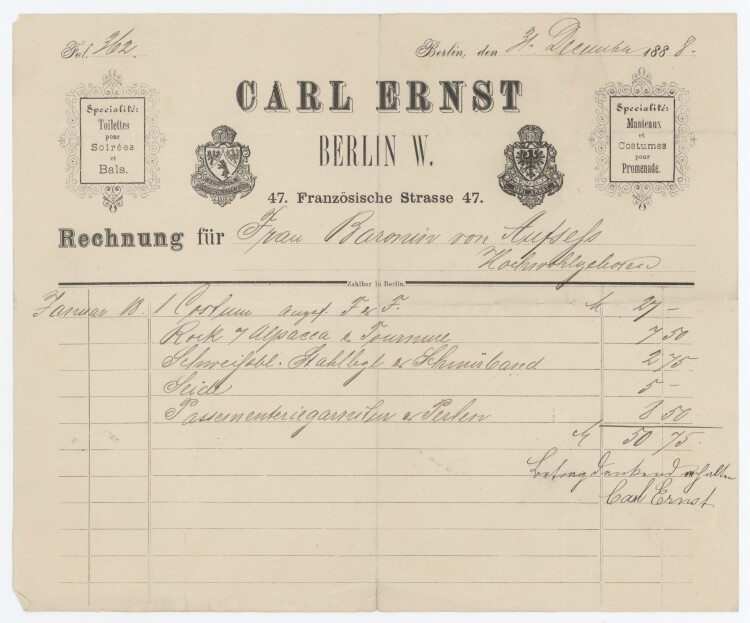 Fol. 362.
Berlin, den 31. December 1888.
CARL ERNST
BERLIN W.
47. Französische Strasse 47.
Specialité:
Toilettes
pour
Soirées
et
Bals.
Specialité:
Manteaux
et
Costumes
pour
Promenade.
Rechnung für Frau Baronin von Aufseß
Hochwohlgeboren
Zahlbar in Berlin.
Januar 18. 1 Costum angef. F & F. M 27 –
Rock 7 Alpacca & Tournure 7 50
Schweißbl. Stahlbgl & Schnürband 2 75
Seide 5 –
Passementeriegarnitur & Perlen 8 50
M 50 75.
Betrag dankend erhalten
Carl Ernst